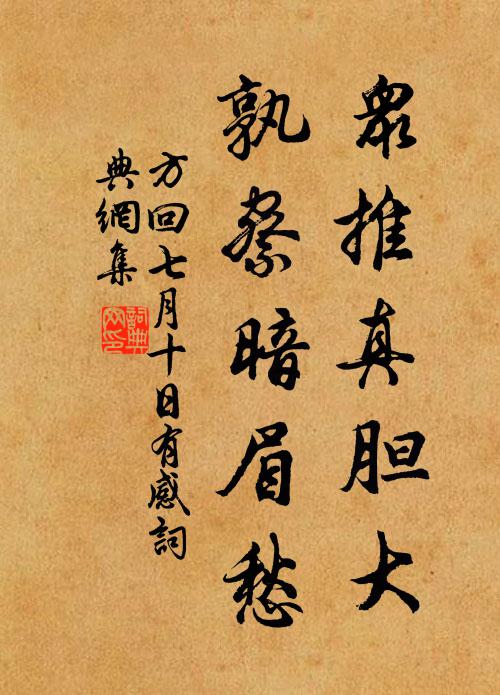 眾推真胆大
孰察暗眉愁
方回七月十日有感詞
典網集
詞典
网印